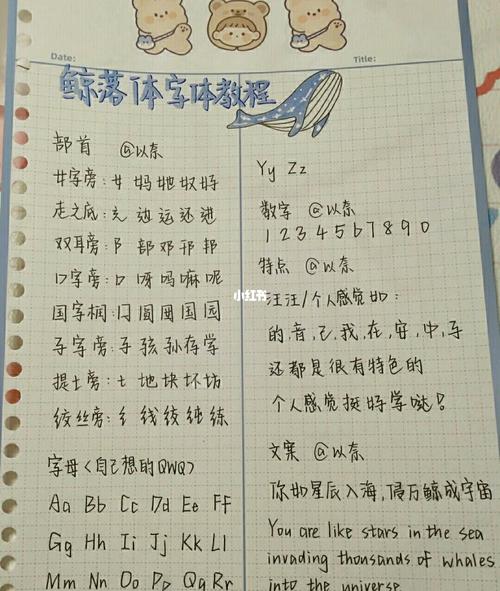 Date:
Title:
鲸落体字体教程
部首 @以奈
女字旁: 女 妈 她 奴 好
走之底: 辶 边 运 还 进
双耳旁: 阝 部 邓 邗 邦
口字旁: 口 呀 吗 嘛 呢
国字框: 囗 圆 国 园
子字旁: 子 孩 孙 存 学
提土旁: 土 地 块 坏 坊
绞丝旁: 纟 线 绞 纯 练
字母<自己想的QWQ>
Aa Bb Cc Dd Ee Ff
Gg Hh Ii Jj Kk Ll
Mm Nn Oo Pp Qq Rr
Yy Zz
数字 @以奈
1 2 3 4 5 6 7 8 9 0
特点 @以奈
汪汪/个人感觉如:
的,音,己,我,在,安,中,子
还都是很有特色的
个人感觉挺好学哒!
文案 @以奈
你如星辰入海,侵万鲸成宇宙
You are like stars in the sea
invading thousands of whales
into the universe
小红书